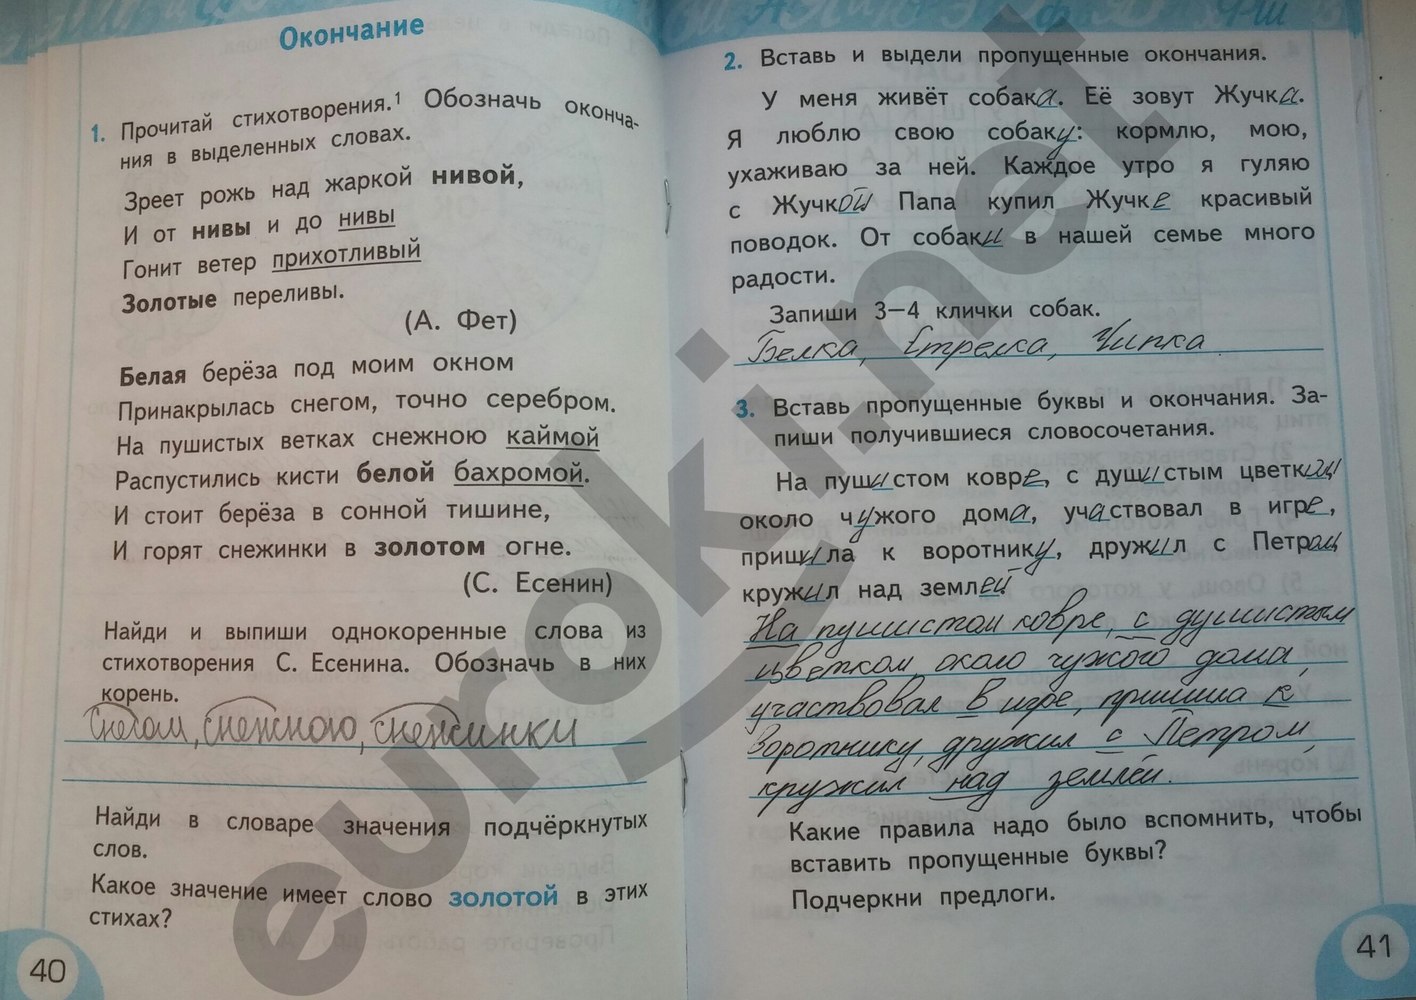 Окончание
1. Прочитай стихотворения.¹ Обозначь оконча-
ния в выделенных словах.
Зреет рожь над жаркой нивой,
И от нивы и до нивы
Гонит ветер прихотливый
Золотые переливы.
(А. Фет)
Белая берёза под моим окном
Принакрылась снегом, точно серебром.
На пушистых ветках снежною каймой
Распустились кисти белой бахромой.
И стоит берёза в сонной тишине,
И горят снежинки в золотом огне.
(С. Есенин)
Найди и выпиши однокоренные слова из
стихотворения С. Есенина. Обозначь в них
корень.
Снегом, снежною, снежинки
Найди в словаре значения подчёркнутых
слов.
Какое значение имеет слово золотой в этих
стихах?
40
2. Вставь и выдели пропущенные окончания.
У меня живёт собака. Её зовут Жучка.
Я люблю свою собаку: кормлю, мою,
ухаживаю за ней. Каждое утро я гуляю
с Жучкой Папа купил Жучке красивый
поводок. От собаки в нашей семье много
радости.
Запиши 3–4 клички собак.
Белка, Стрелка, Чипка
3. Вставь пропущенные буквы и окончания. За-
пиши получившиеся словосочетания.
На пушистом ковре, с душистым цветком
около чужого дома, участвовал в игре,
пришила к воротнику, дружил с Петром
кружил над землей.
На пушистом ковре, с душистым
цветком, около чужого дома,
участвовал в игре, пришила к
воротнику, дружил с Петром,
кружил над землёй.
Какие правила надо было вспомнить, чтобы
вставить пропущенные буквы?
Подчеркни предлоги.
41
euroki.net